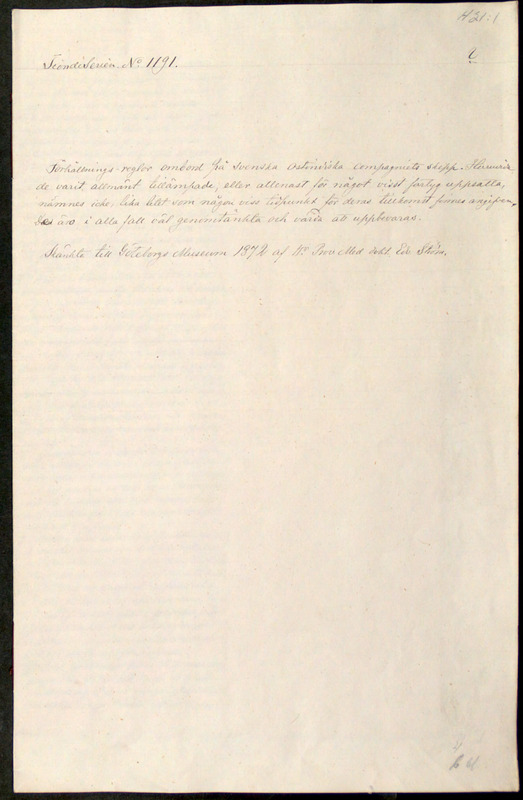 H 31:1
Tionde Serien No 1191.
Förhållnings-reglor ombord på Svenska Ostindiska Compagniets skepp. Huruvida
de varit allmänt tillämpade, eller allenast för något visst fartyg uppsatta,
nämnes icke, lika litet som någon viss tidpunkt för deras tillkomst finnes angifven,
De äro i alla fall väl genomtänkta och värda att uppbevaras.
Skänkte till Göteborgs Museum 1872 af Hr Prov. Med. Dokt. Ed. Ström.